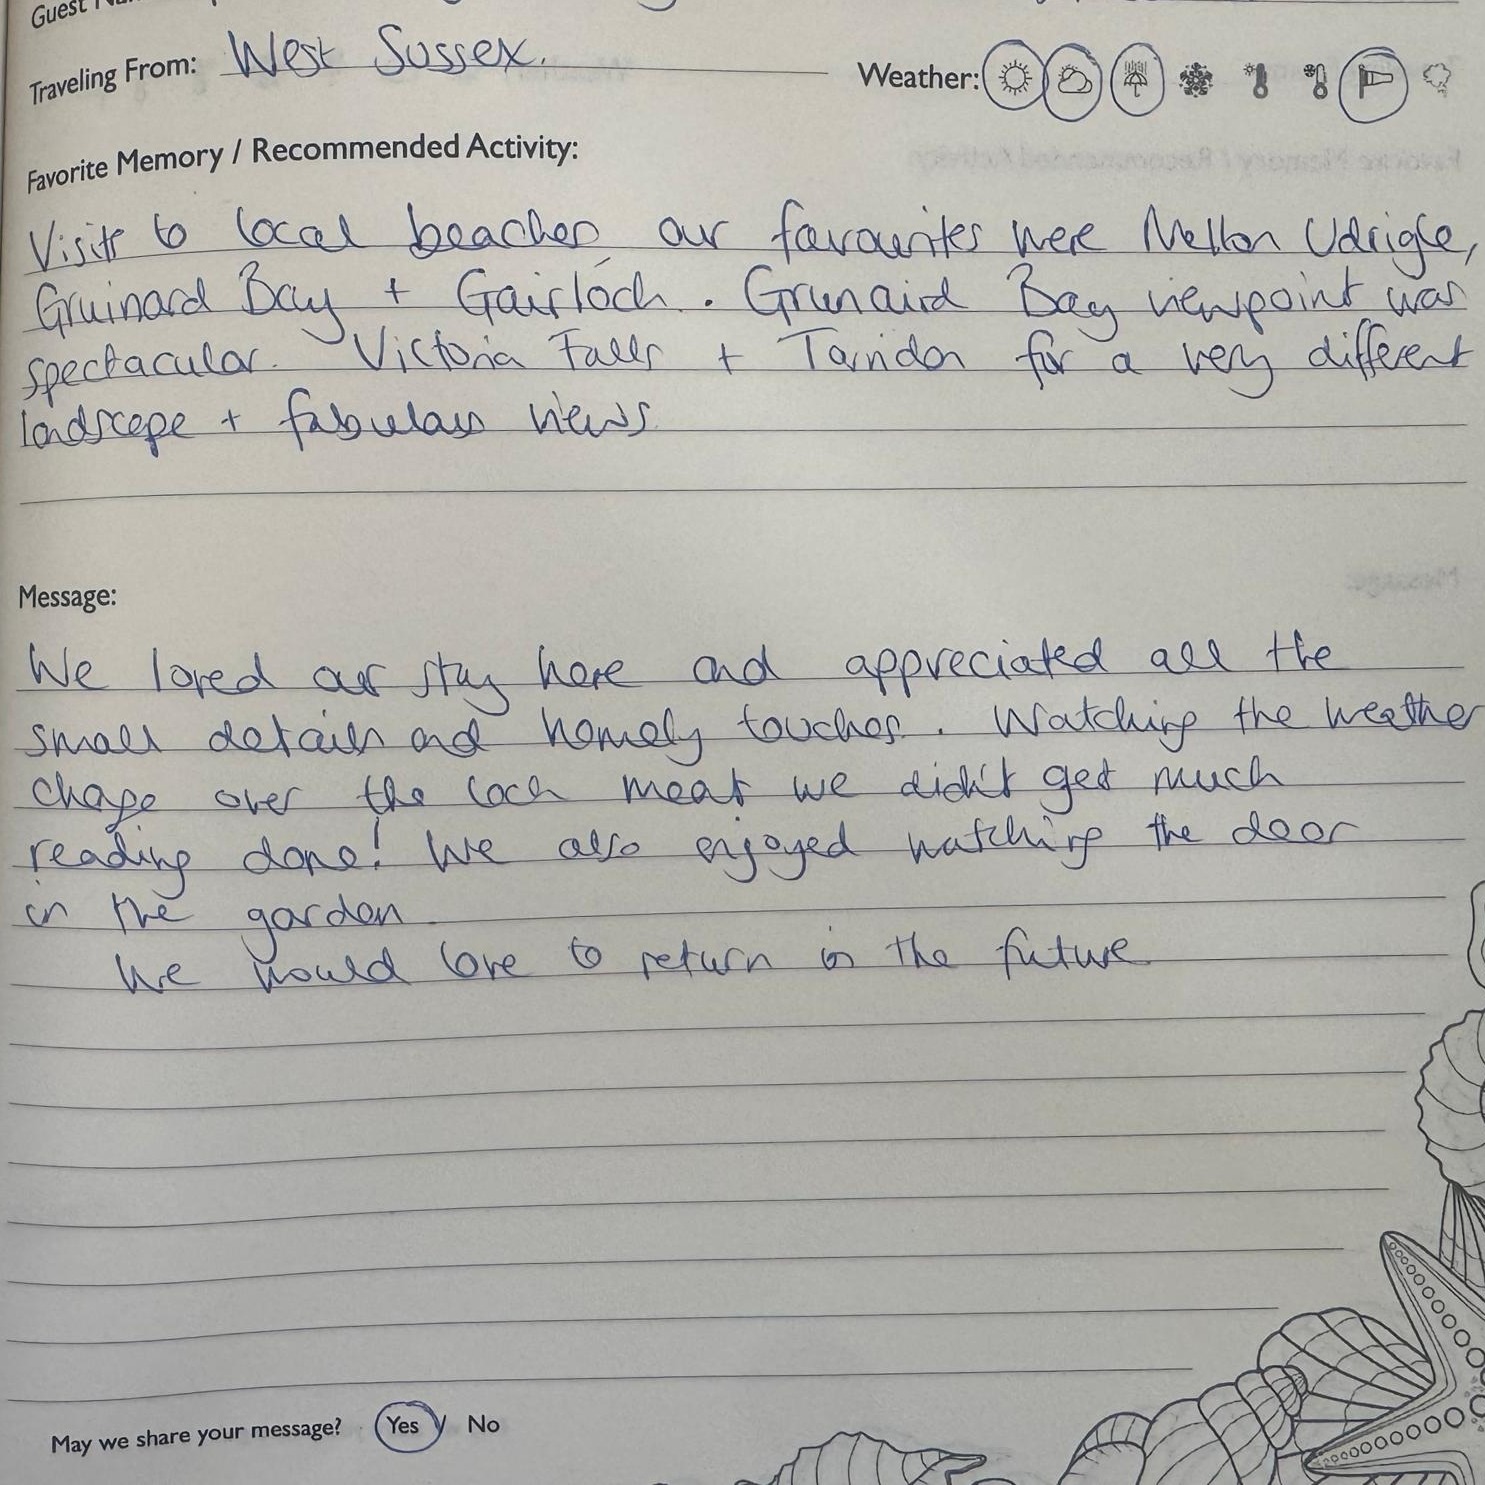 Guest
Traveling From: West Sussex.
Weather:
Favorite Memory / Recommended Activity:
Visits to local beaches our favourites were Mellon Udrigle,
Gruinard Bay + Gairloch. Grunaird Bay viewpoint was
spectacular. Victoria Falls + Torridon for a very different
landscape + fabulous views
Message:
We loved our stay here and appreciated all the
small details and homely touches. Watching the weather
change over the loch meat we didn't get much
reading done! We also enjoyed watching the deer
in the garden
We would love to return in the future
May we share your message? Yes / No